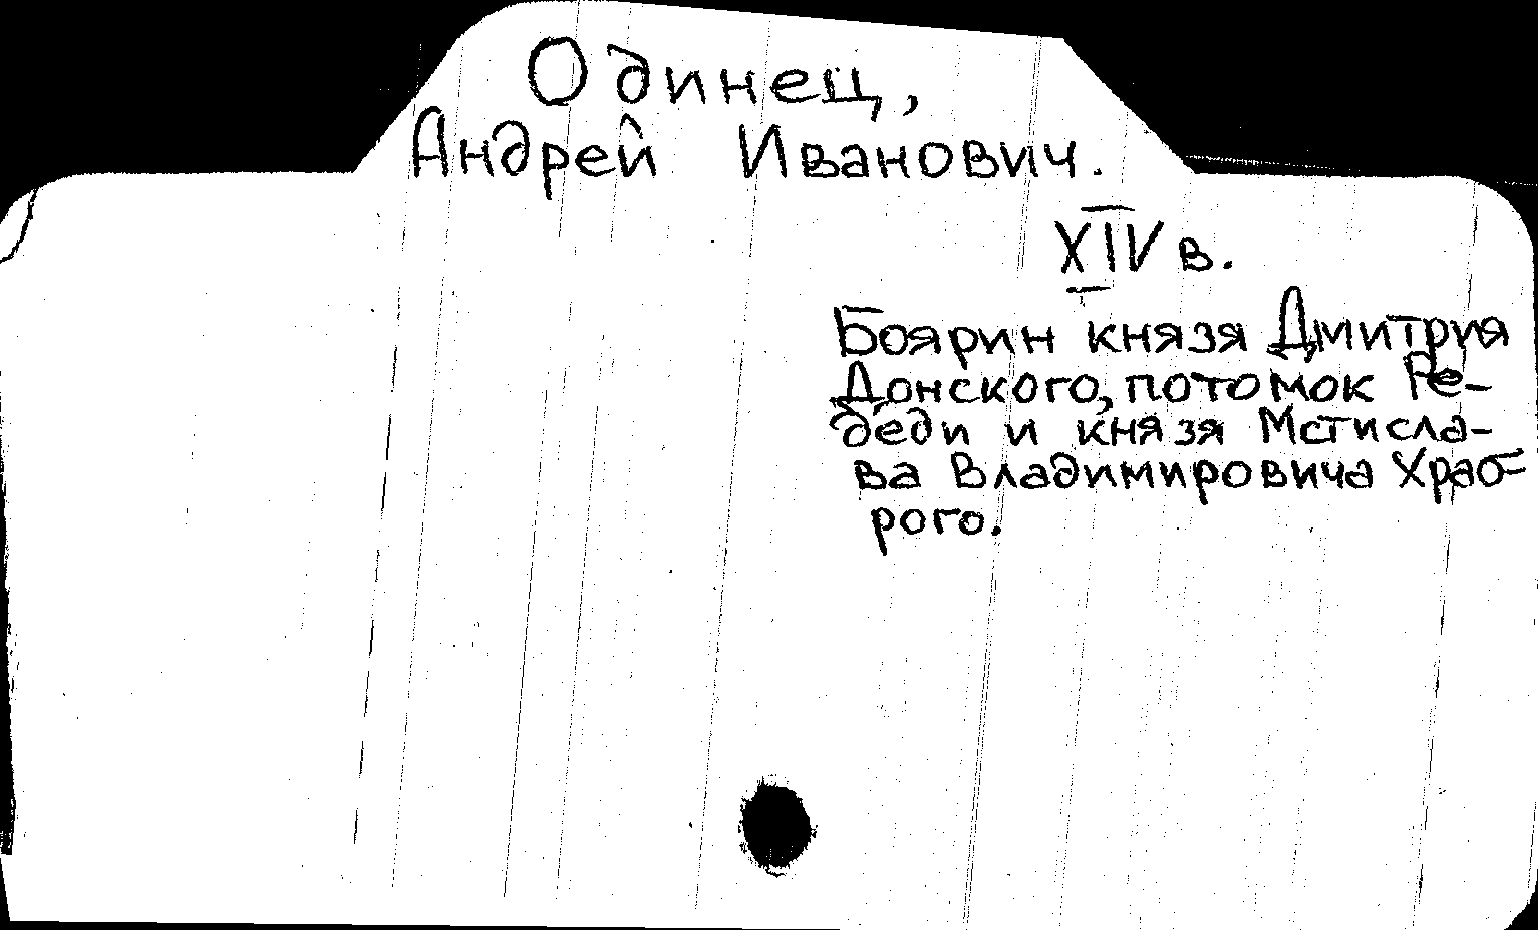 Одинец,
Андрей Иванович.
XIV в.
Боярин князя Дмитрия
Донского, потомок Ре-
деди и князя Мстисла-
ва Владимировича Храб-
рого.